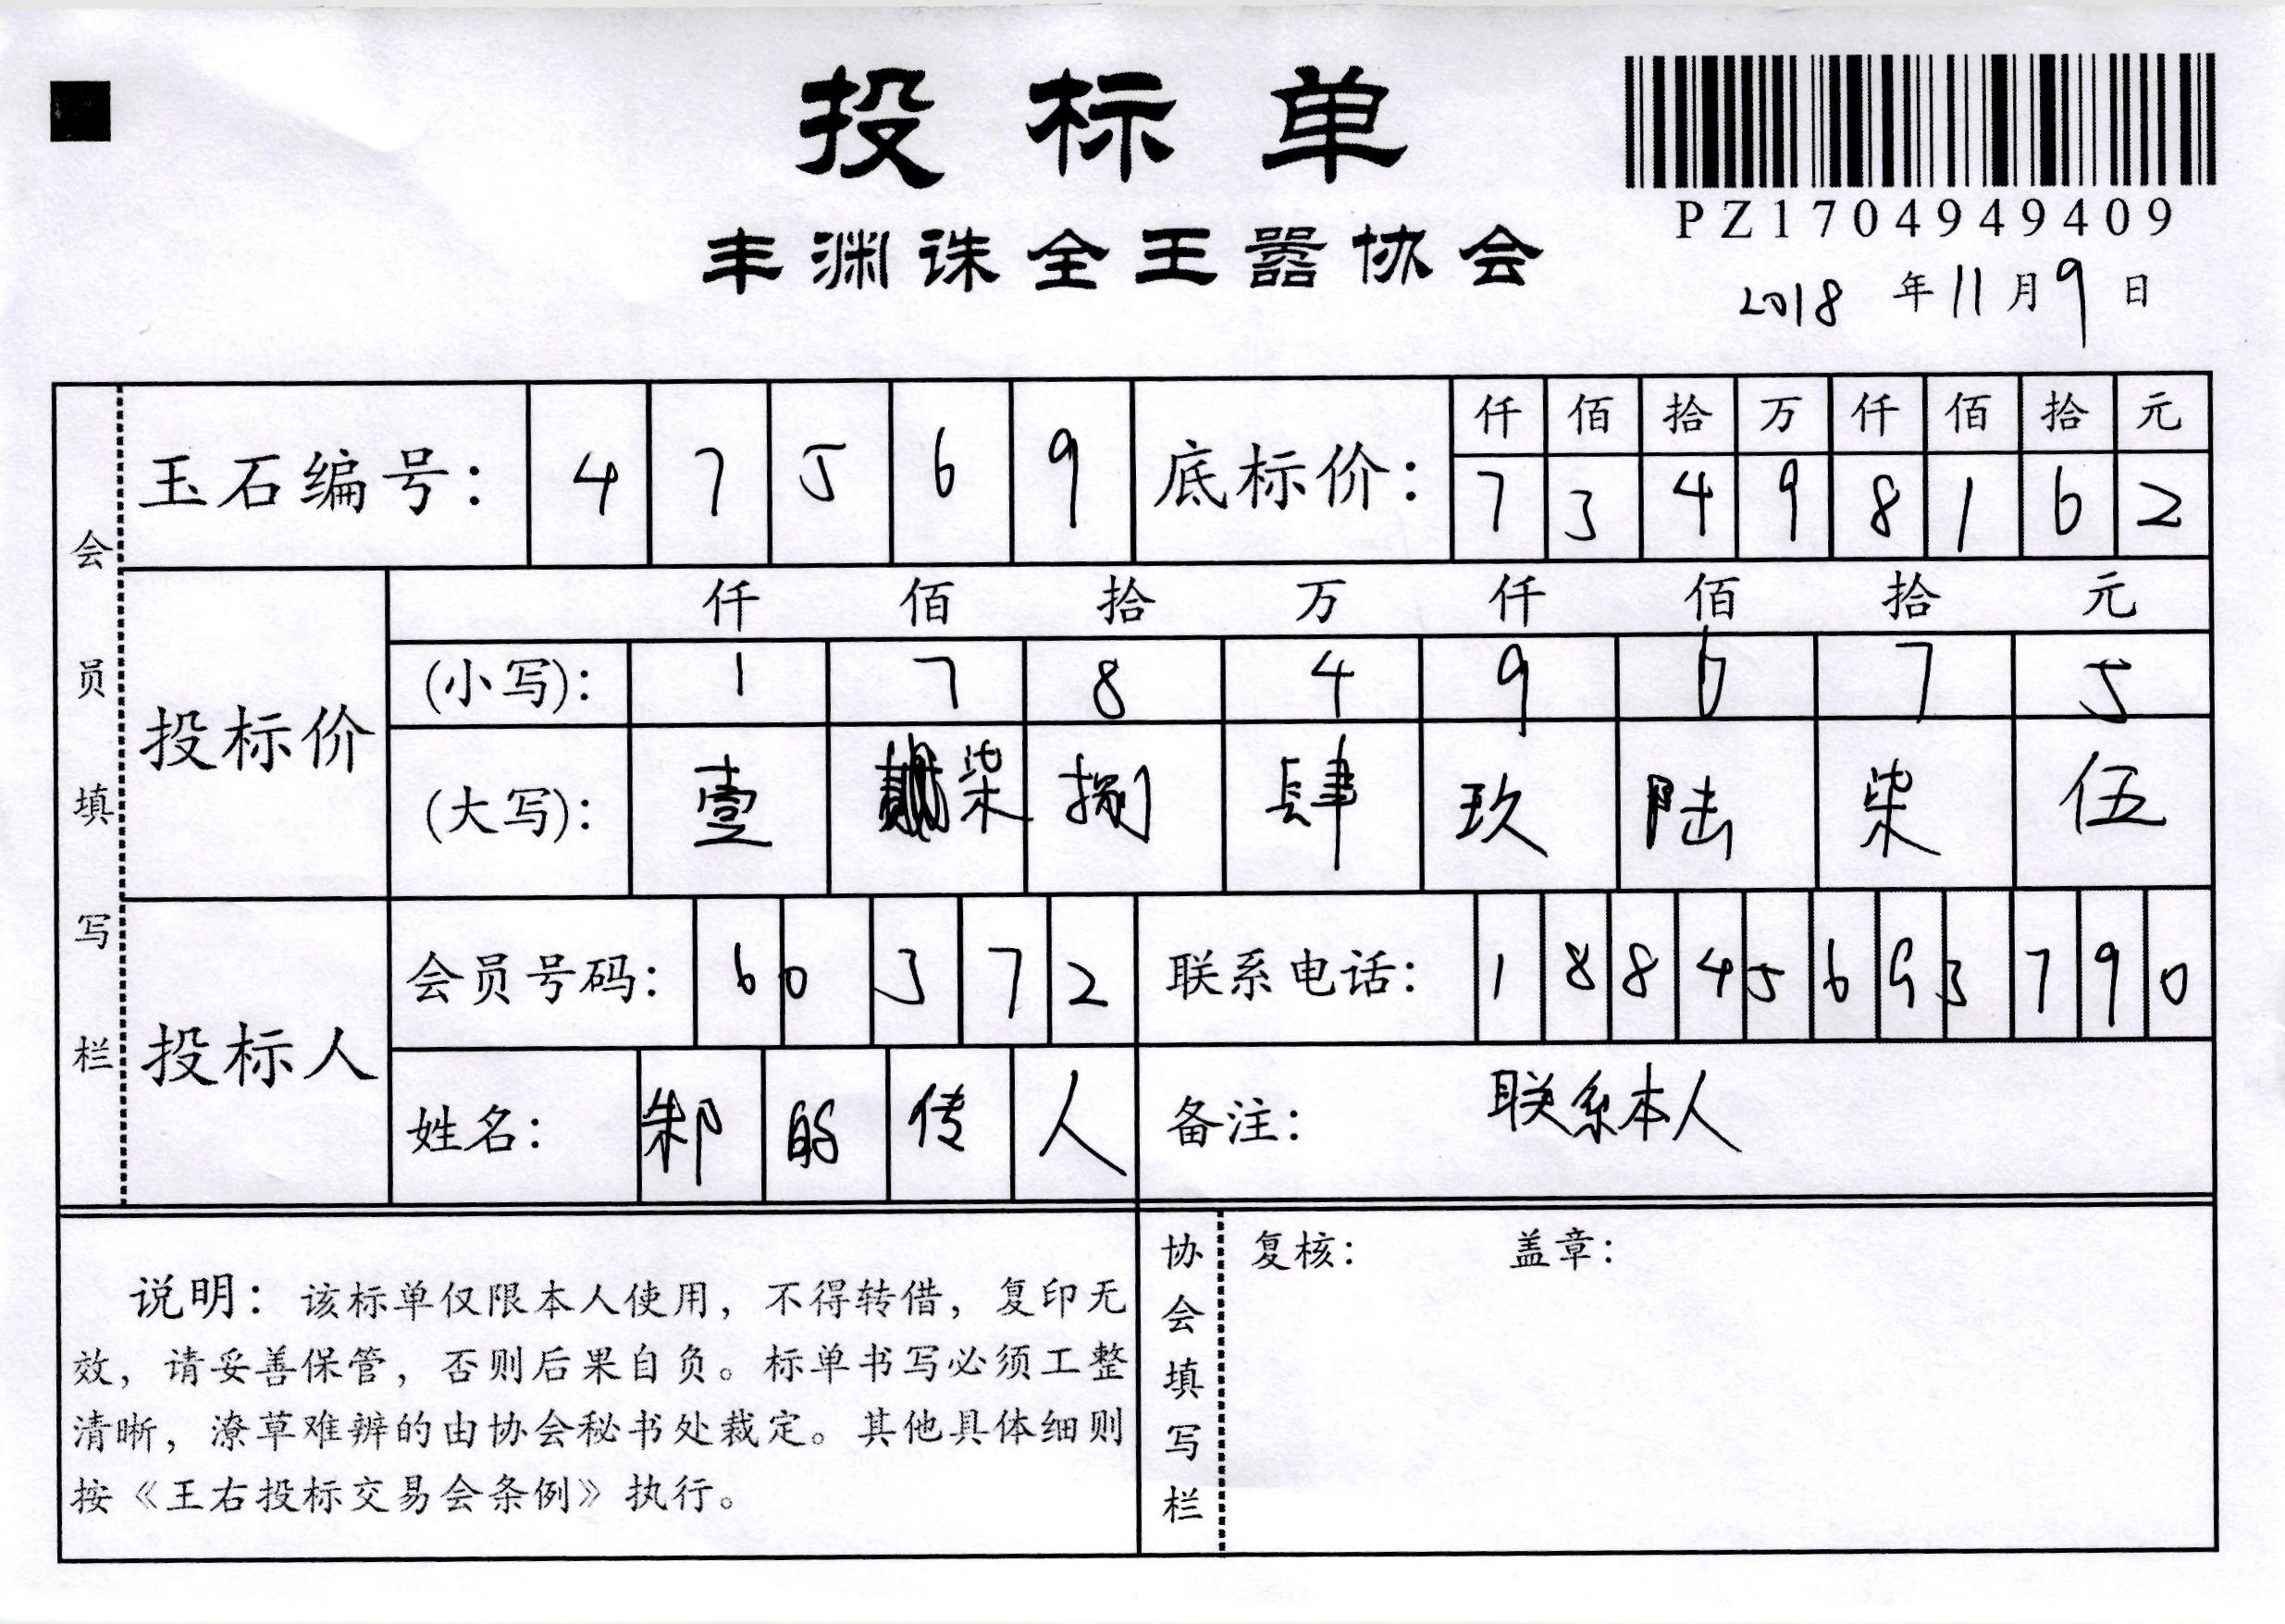 投标单
PZ1704949409
丰渊诛全王嚣协会
2018 年 11 月 9 日
会员填写栏
玉石编号: 4 7 5 6 9
底标价: 仟 佰 拾 万 仟 佰 拾 元
7 3 4 9 8 1 6 2
投标价
仟 佰 拾 万 仟 佰 拾 元
(小写): 1 7 8 4 9 6 7 5
(大写): 壹 柒 捌 肆 玖 陆 柒 伍
投标人
会员号码: 6 0 3 7 2
联系电话: 1 8 8 4 5 6 9 3 7 9 0
姓名: 的 传 人
备注: 联系本人
说明: 该标单仅限本人使用, 不得转借, 复印无
效, 请妥善保管, 否则后果自负。标单书写必须工整
清晰, 潦草难辨的由协会秘书处裁定。其他具体细则
按《王右投标交易会条例》执行。
协会填写栏
复核: 盖章: